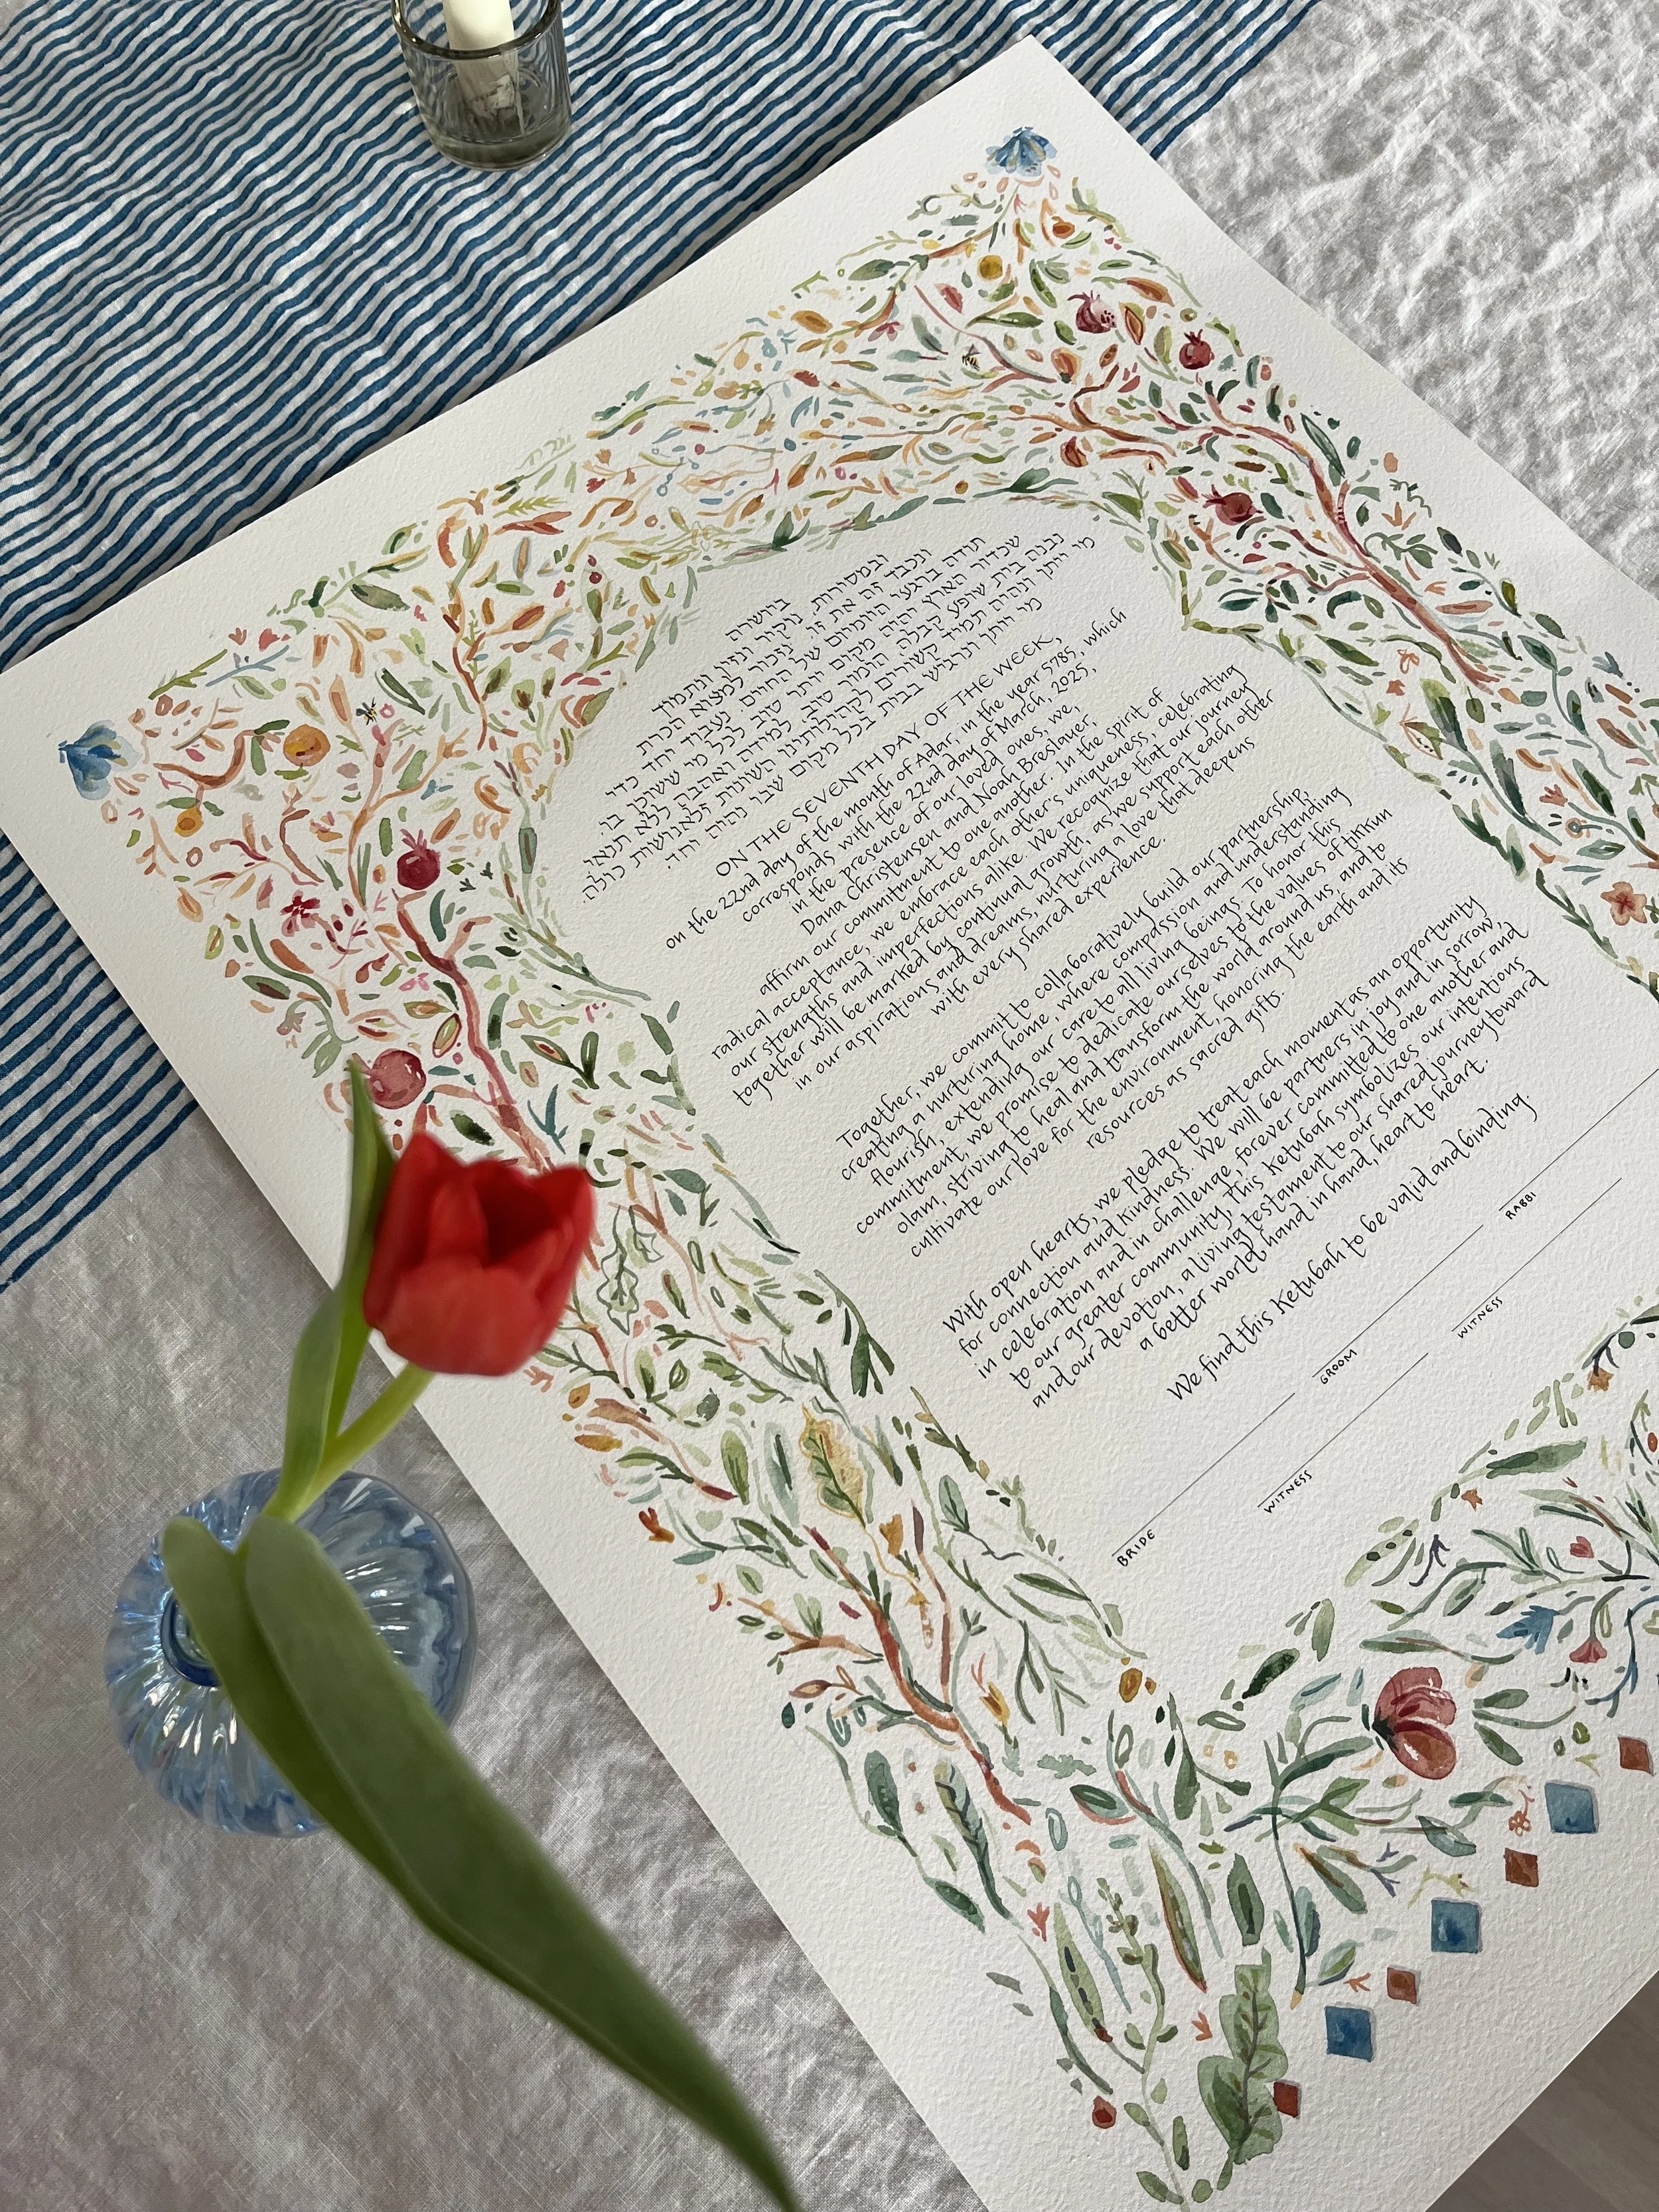 ביושרה
ובמסירות, נוקיר ונזין ונתמיד
ונכבד זה את זו. נזכור למצוא הכרת
תודה ברגעי היומיום של החיים. נעבוד יחד כדי
שכדור הארץ יהיה מקום יותר טוב לכל מי ששוכן בו.
נבנה בית שופע קבלה, הומור טוב, למידה ואהבה ללא תנאי.
מי ייתן ונהיה תמיד קשורים לקהילותינו השונות ולאנושות כולה.
מי ייתן ונרגיש בבית בכל מקום שבו נהיה יחד.
ON THE SEVENTH DAY OF THE WEEK,
on the 22nd day of the month of Adar, in the year 5785, which
corresponds with the 22nd day of March, 2025,
in the presence of our loved ones, we,
Dana Christensen and Noah Breslauer,
affirm our commitment to one another. In the spirit of
radical acceptance, we embrace each other's uniqueness, celebrating
our strengths and imperfections alike. We recognize that our journey
together will be marked by continual growth, as we support each other
in our aspirations and dreams, nurturing a love that deepens
with every shared experience.
Together, we commit to collaboratively build our partnership,
creating a nurturing home, where compassion and understanding
flourish, extending our care to all living beings. To honor this
commitment, we promise to dedicate ourselves to the values of tikkun
olam, striving to heal and transform the world around us, and to
cultivate our love for the environment, honoring the earth and its
resources as sacred gifts.
With open hearts, we pledge to treat each moment as an opportunity
for connection and kindness. We will be partners in joy and in sorrow,
in celebration and in challenge, forever committed to one another and
to our greater community. This Ketubah symbolizes our intentions
and our devotion, a living testament to our shared journey toward
a better world, hand in hand, heart to heart.
We find this Ketubah to be valid and binding.
BRIDE GROOM RABBI
WITNESS WITNESS